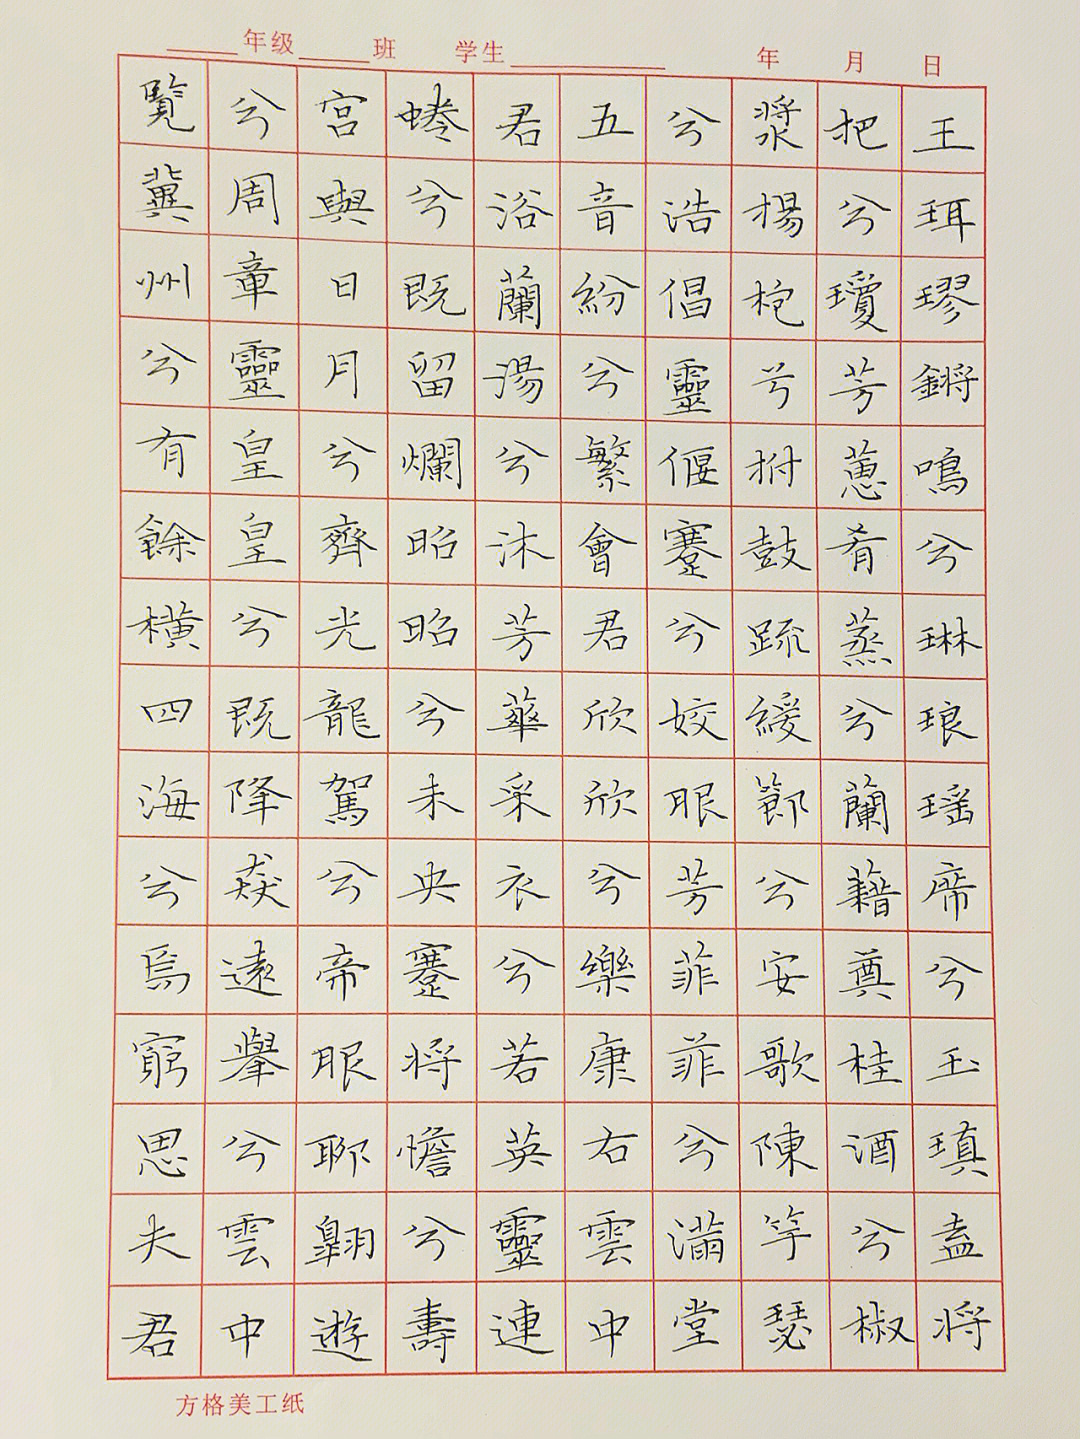 年级 班 学生 年 月 日
王珥璆鏘鳴兮琳琅瑶席兮玉瑱盍将
把兮瓊芳蕙肴蒸兮蘭藉奠兮桂酒兮椒
漿揚枹兮拊鼓疏緩節兮安歌陳竽瑟
兮浩倡靈偃蹇兮姣服芳菲菲兮滿堂
五音紛兮繁會君欣欣兮樂康右雲中
君浴蘭湯兮沐芳華采衣兮若英靈連
蜷兮既留爛昭昭兮未央蹇将憺兮壽
宮與日月兮齊光龍駕兮帝服聊翱遊
兮周章靈皇皇兮既降猋遠舉兮雲中
覽冀州兮有餘橫四海兮焉窮思夫君
方格美工纸